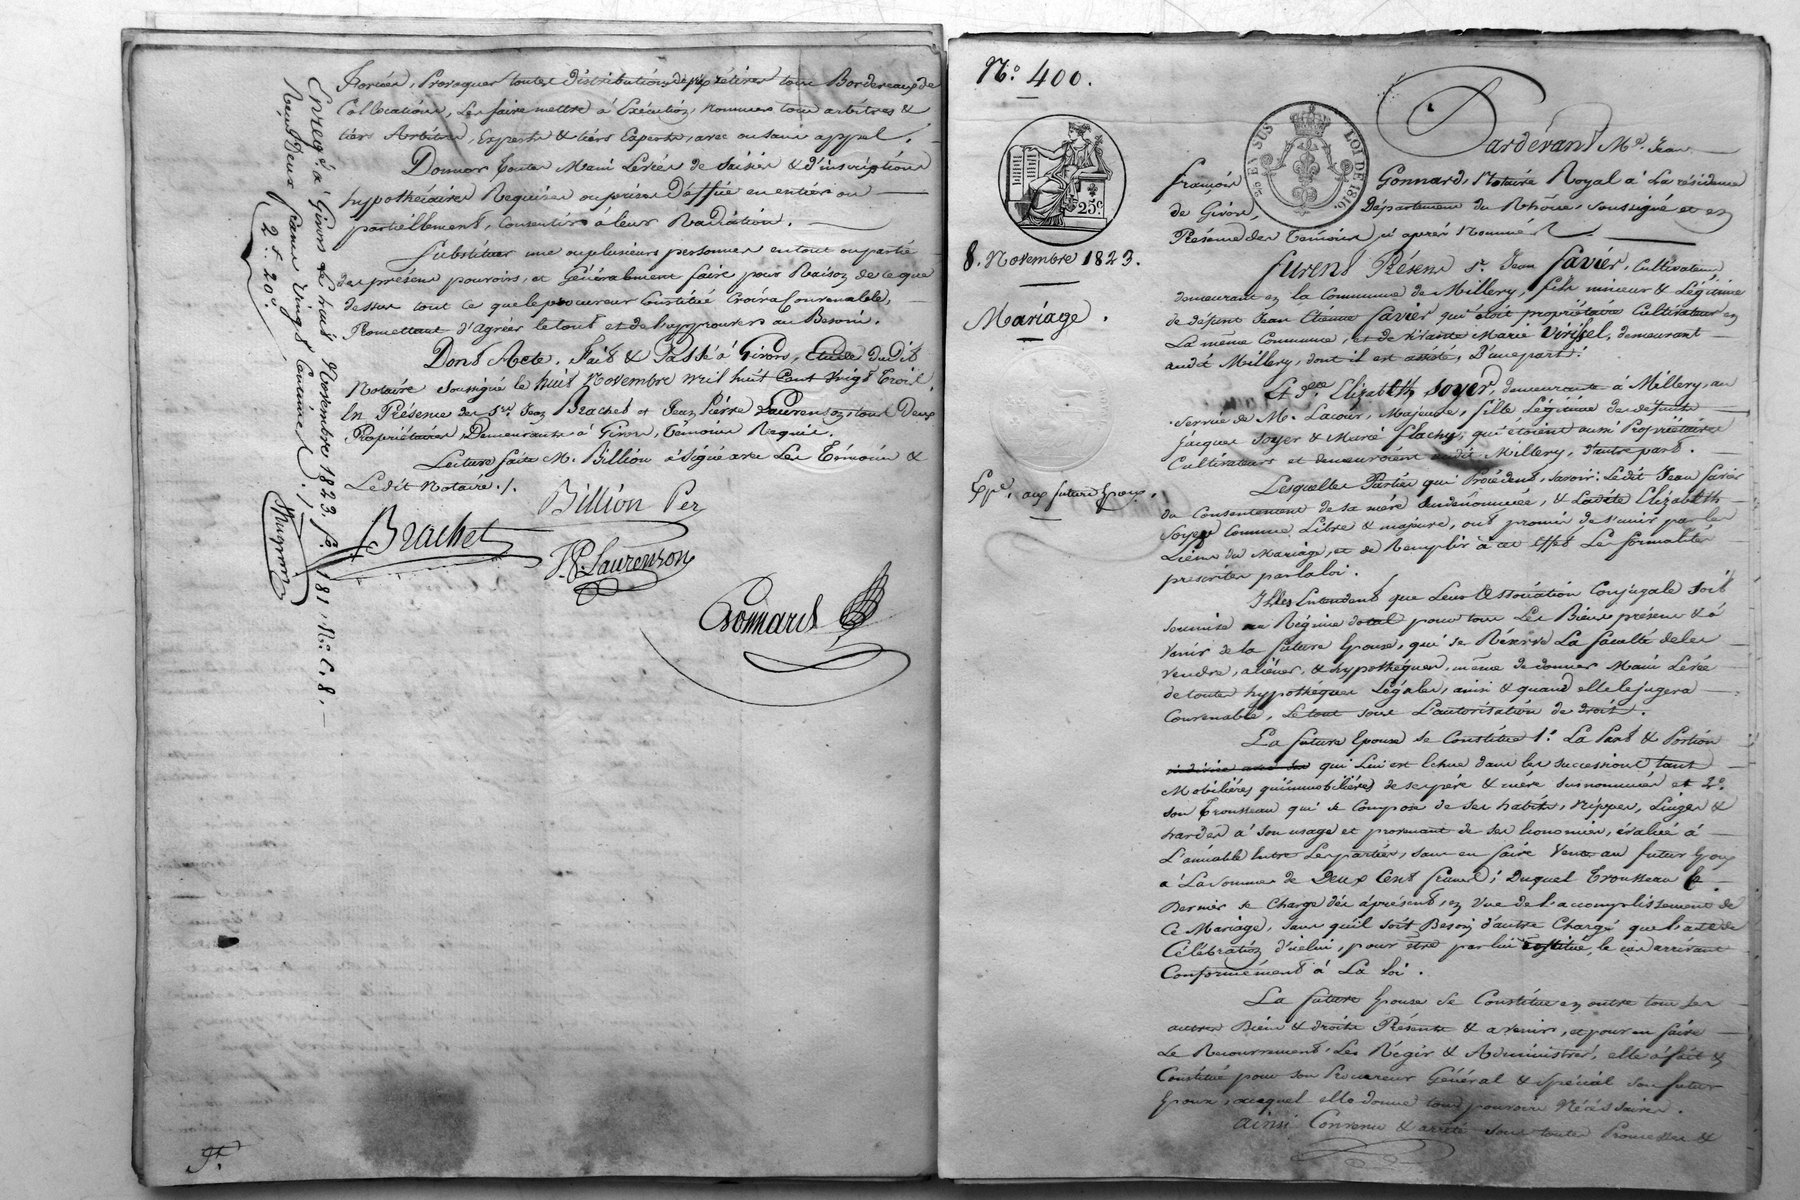 forcées, Provoquer toutes distributions de prix, retirer tous Bordereaux de
Collocations, Les faire mettre à Exécution, Nommer tous arbitres &
tiers Arbitres, Experts & tiers Experts, avec ou sans appel.
Donner toutes Main Levées de saisies & d'inscriptions
hypothécaires Requises ou prises d'office en entier ou
partiellement, Consentir à leur Radiation.
Substituer une ou plusieurs personnes en tout ou partie
des présens pouvoirs, et Généralement faire pour Raison de ce que
dessus tout ce que le procureur Constitué Croira Convenable,
Promettant d'Agréer le tout et de l'approuver au Besoin.
Dont Acte. Fait & Passé à Givors, Etude dudit
Notaire soussigné le huit Novembre mil huit Cent Vingt Trois.
En Présence de Srs Jean Brachet et Jean Pierre Laurenson, tous Deux
Propriétaires, Demeurants à Givors, Témoins Requis.
Lecture faite M. Billion a signé avec Les Témoins &
Le dit Notaire ./.
Billion Per
Brachet
J.P. Laurenson
Gonnard
Enregté à Givors Le huit Novembre 1823. fo. 181. Ro. C. 8.
Reçu Deux francs Vingt Centimes ./.
2.f 20.c
No. 400.
25c
25 EN SUS
LOI DE 1816
8. Novembre 1823.
Mariage.
Epd. aux futurs Epoux.
Pardevant Me. Jean
françois Gonnard, Notaire Royal à La résidence
de Givors, Département du Rhône, soussigné et en
Présence des Témoins ci après Nommés
furent Présens Sr. Jean favier, Cultivateur
demeurant en la Commune de Millery, fils mineur & Légitime
de défunt Jean Etienne favier qui étoit propriétaire Cultivateur en
La même Commune, et de vivante Marie Virissel, demeurant
audit Millery, dont il est assisté, D'une part.
Et Dlle Elizabeth soyer, demeurante à Millery, au
service de M. Lacour, Majeure, fille Légitime de défunts
Jacques soyer & Marie flachy, qui étoient aussi Propriétaires
Cultivateurs et demeuroient audit Millery, D'autre part.
Lesquelles Parties qui Procèdent, savoir: Ledit Jean favier
du Consentement de sa mère susdénommée, & Ladite Elizabeth
soyer Comme Libre & majeure, ont promis de s'unir par les
Liens du Mariage, et de Remplir à cet Effet Les formalités
prescrites par la loi.
Elles Entendent que Leur Association Conjugale soit
soumise au Régime dotal pour tous Les Biens présens & à
venir de la future Epouse, qui se Réserve La faculté de les
vendre, aliéner, & hypothéquer, même de donner Main Levée
de toutes hypothèques Légales, ainsi & quand elle le jugera
Convenable, Le tout sous L'autorisation de droit.
La future Epouse se Constitue 1.o La Part & Portion
qui Lui est échue dans les successions tant
Mobilières qu'immobilières de ses père & mère susnommés et 2.o
son Trousseau qui se Compose de ses habits, Nippes, Linges &
hardes à son usage et provenant de ses Economies, évalué à
L'amiable Entre Les parties, sans en faire Vente au futur Epoux
à La somme de Deux Cent francs; Duquel Trousseau le
Dernier se Charge dès à présent, en Vue de l'accomplissement de
Ce Mariage, sans qu'il soit Besoin d'autre Charge que l'acte de
Célébration d'icelui, pour être par lui restitué, le cas arrivant
Conformément à La Loi.
La future Epouse se Constitue en outre tous ses
autres Biens & droits Présents & à venir, et pour en faire
Le Recouvrement, Les Régir & Administrer, elle a fait &
Constitué pour son Procureur Général & spécial son futur
Epoux, auquel elle donne tous pouvoirs Nécéssaires.
Ainsi Convenu & arrêté sous toutes Promesses &